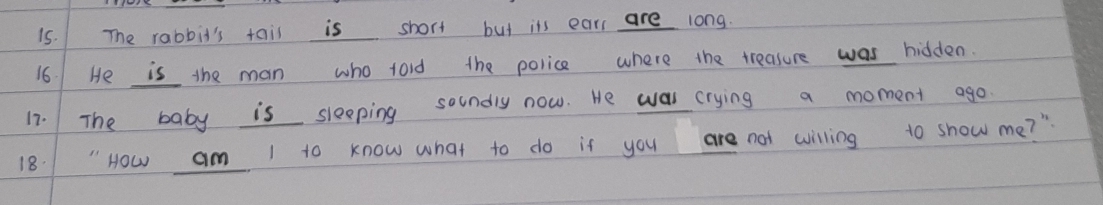 15. The rabbit's tail is short but its ears are long.
16. He is the man who told the police where the treasure was hidden.
17. The baby is sleeping soundly now. He was crying a moment ago.
18. "How am I to know what to do if you are not willing to show me?".